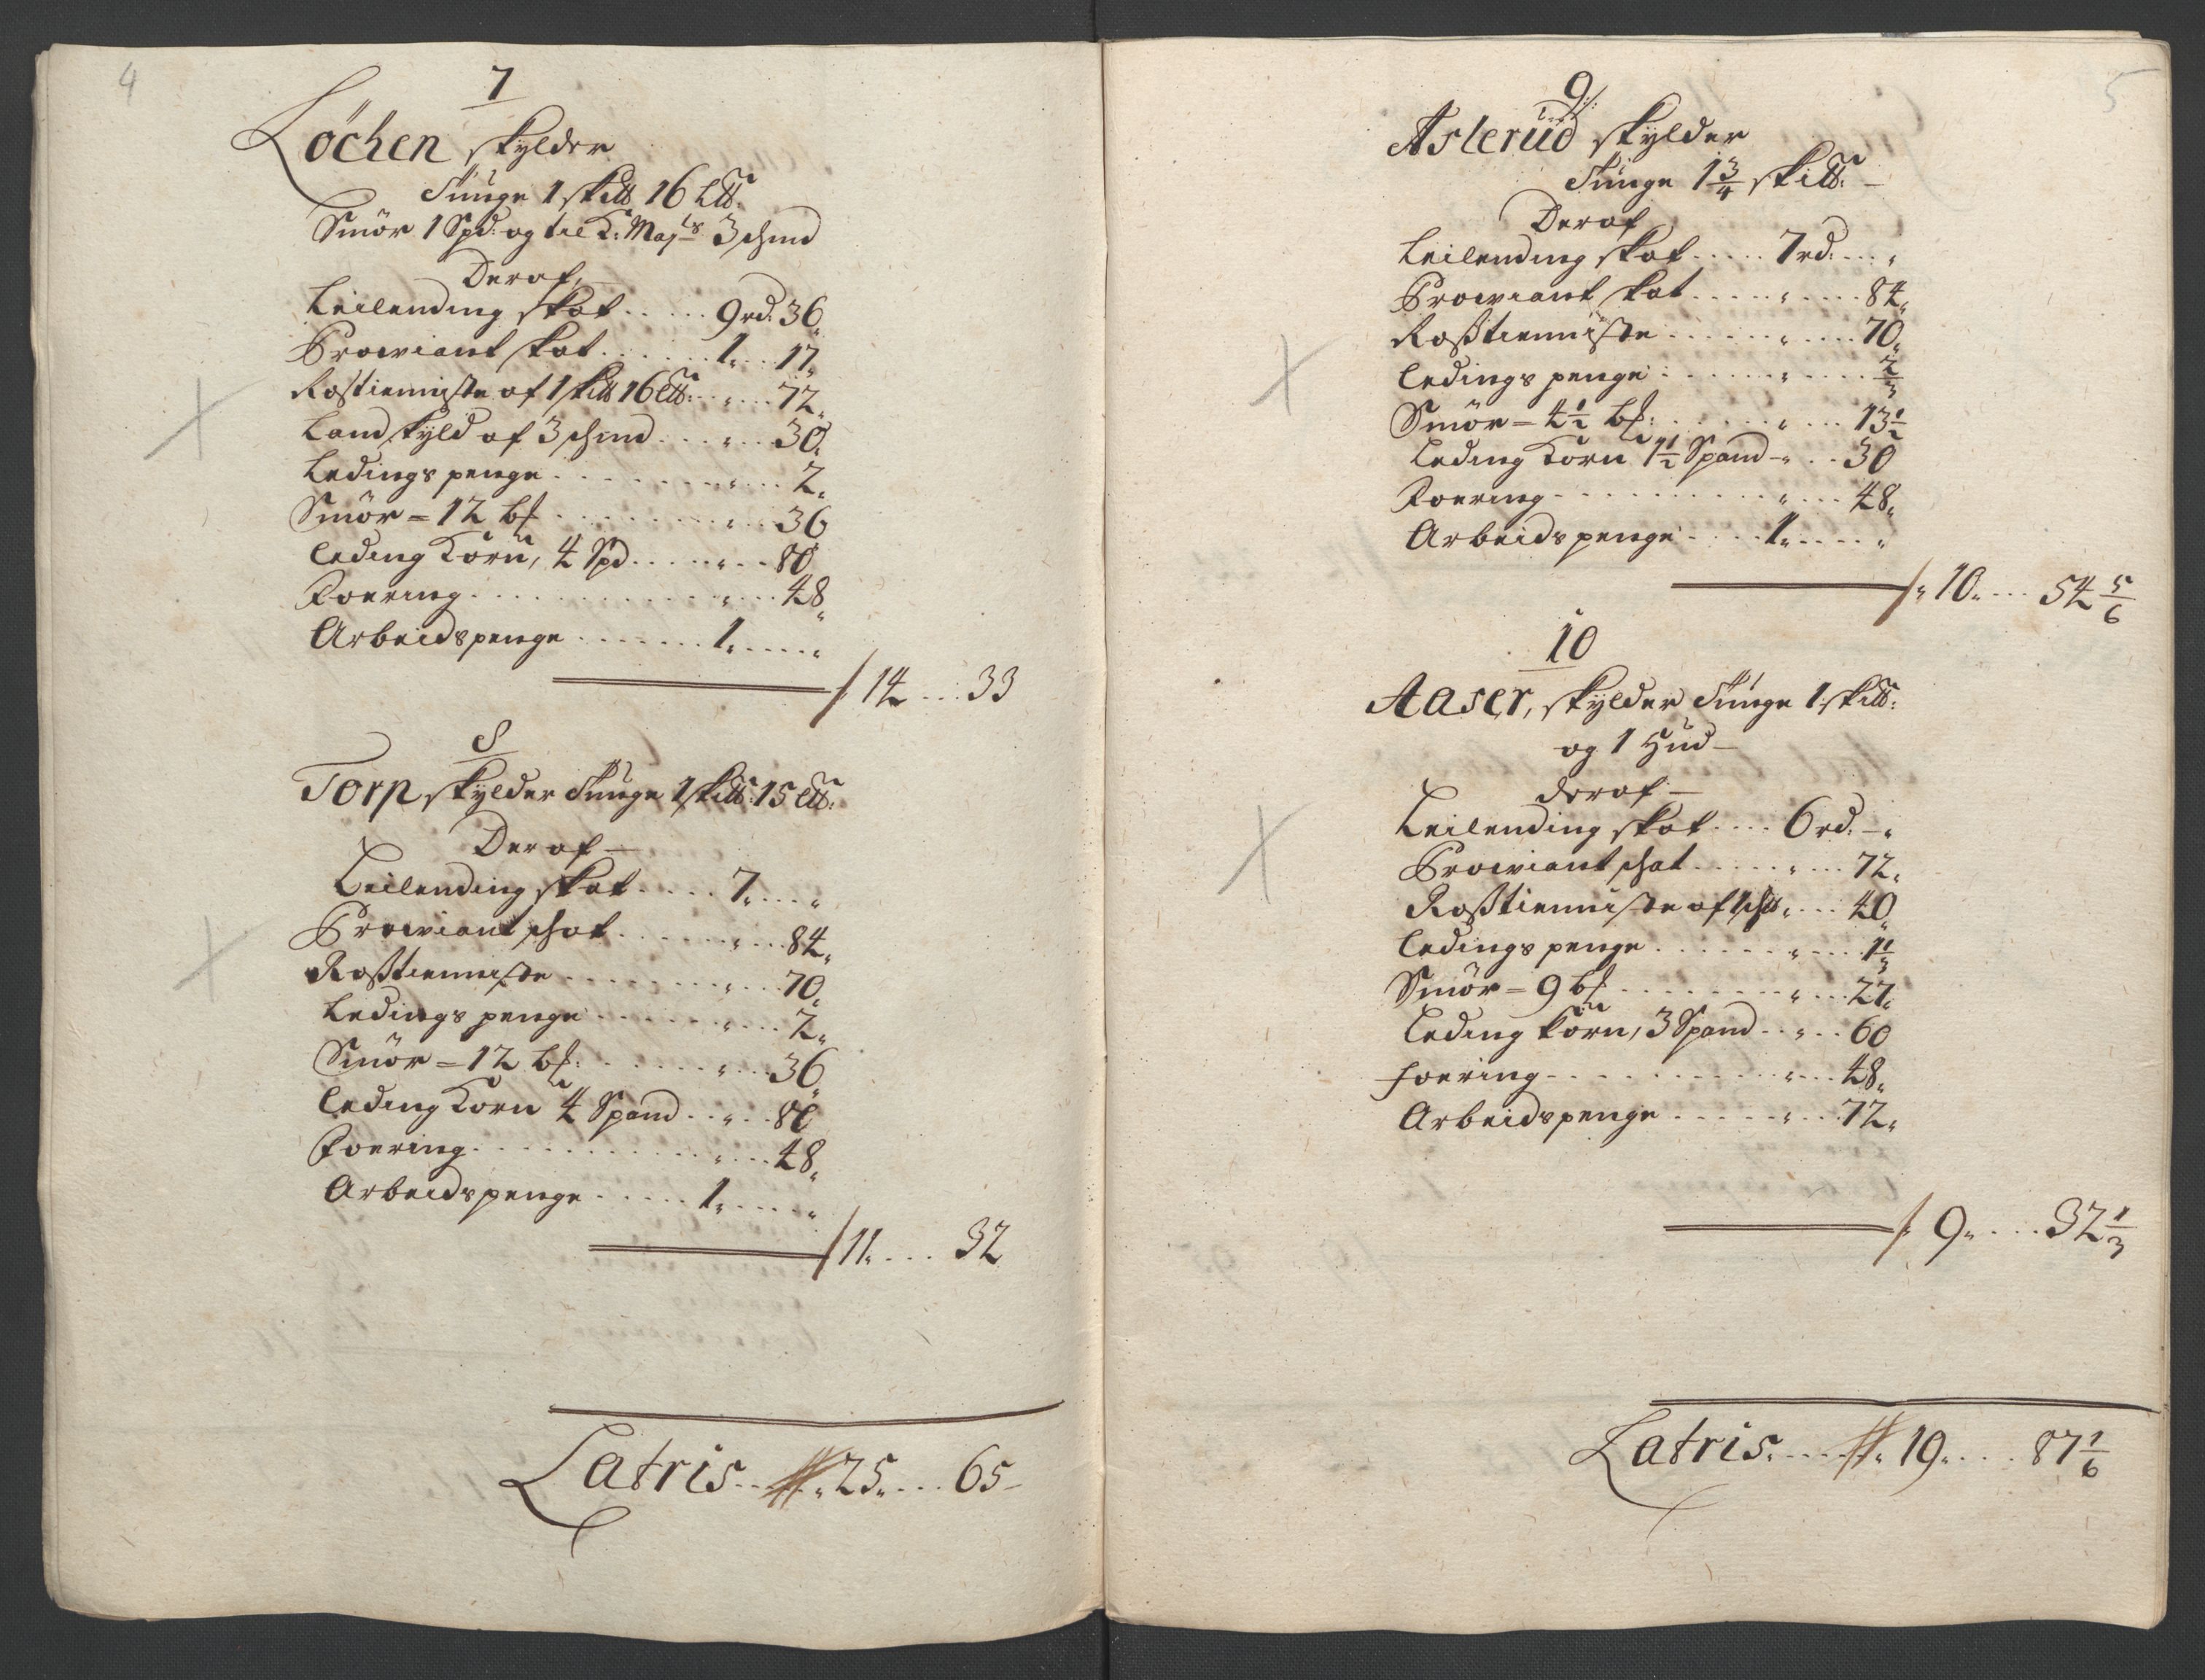 4
7
Løchen skylder
Tunge 1 sk℔ 16 L℔:
Smör 1 Spd: og til K: Majts 3 schind
Deraf,
Leilending skat ..... 9 rd: 36
Prowiant skat ...... 1. .. 17
Rostienniste af 1 sk℔ 16 L℔: .. " ... 72
Landskyld af 3 schind ... " .. 30
Ledings penge ....... " ... 2
Smör = 12 bs ........ " ... 36
Leding Korn, 4 Spd ..... " .. 80
Foering ............ " ... 48
Arbeidspenge ....... 1. .... "
14 ... 33
8
Torp skylder Tunge 1 sk℔: 15 L℔:
Deraf
Leilending skat .... 7. ... "
Prowiant schat ...... " ... 84
Rosstienniste ....... " ... 70
Ledings penge ...... " ... 2
Smör = 12 bs: ...... " ... 36
Leding Korn 4 Spand .. " .. 80
Foering ........... " ... 48
Arbeidspenge ..... 1. .... "
11. ... 32
Latris .. 25. ... 65
5
9
Aslerud skylder
Tunge 1 3/4 sk℔:
Deraf
Leilending skat ..... 7 rd: ... "
Prowiant skat ..... " .... 84
Rosstienniste ...... " .... 70
Ledings penge ...... " .... 2/3
Smör = 4 1/2 bs: ..... " ... 13 1/2
Leding Korn 1 1/2 Spand " .. 30
Foering .......... " ... 48
Arbeidspenge .... 1. .... "
10. ... 54 5/6
10
Aaser, skylder Tunge 1 sk℔:
og 1 Hud
deraf
Leilending skat .... 6 rd. "
Prowiant schat ..... " ... 72
Rosstienniste af 1 sch℔ " ... 40
Ledings penge ...... " ... 1 1/3
Smör = 9 bs ........ " ... 27
Leding Korn, 3 Spand .. " .. 60
foering .......... " ... 48
Arbeidspenge ..... " ... 72
9. ... 32 1/3
Latris. .... 19. ... 87 1/6